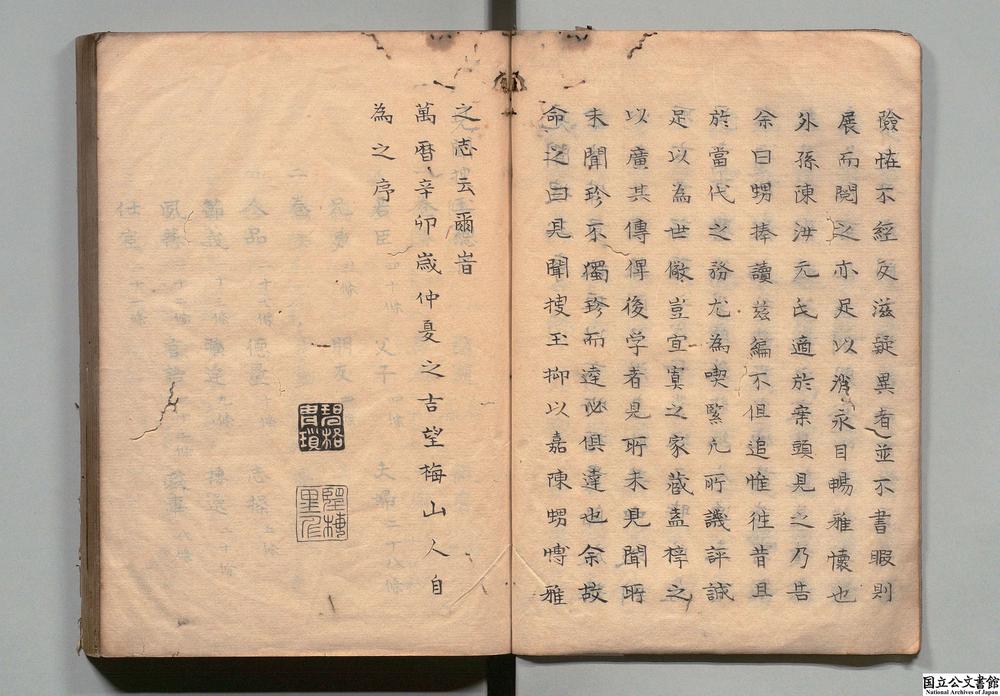 險怪不經反滋疑異者並不書暇則
展而閱之亦足以消永日暢雅懷也
外孫陳汝元氏適於案頭見之乃告
余曰甥捧讀茲編不但追惟徃昔且
於當代之務尤為喫緊凢所譏評誠
足以為世儆豈宜寘之家藏盖梓之
以廣其傳俾後学者見所未見聞所
未聞珍不獨珍而逵必俱達也余故
命之曰見聞搜玉抑以嘉陳甥愽雅
之志云爾旹
萬曆辛卯歲仲夏之吉望梅山人自
為之序
国立公文書館
National Archives of Japan